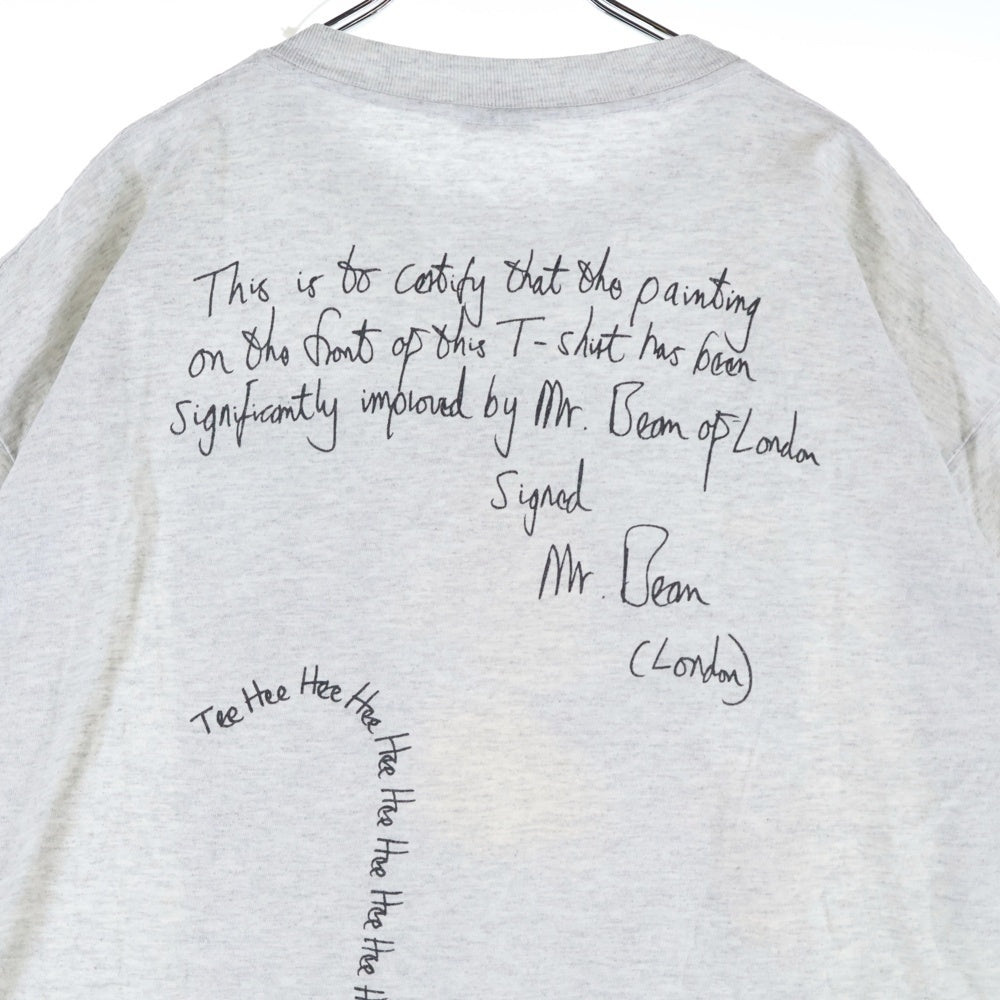 This is to certify that the painting
on the front of this T-shirt has been
significantly improved by Mr. Bean of London
Signed
Mr. Bean
(London)
Tee Hee Hee Hee Hee Hee Hee Hee Hee H